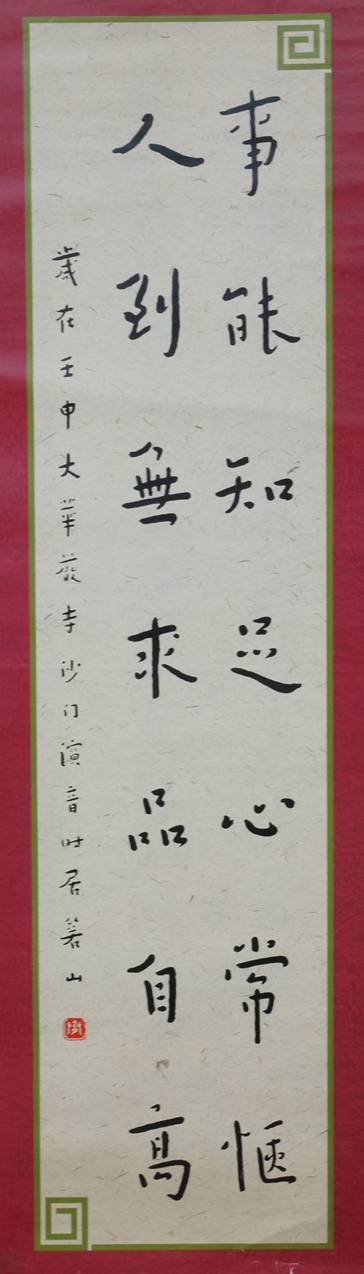 事能知足心常惬
人到無求品自高
歲在壬申大華嚴寺沙门演音时居箬山